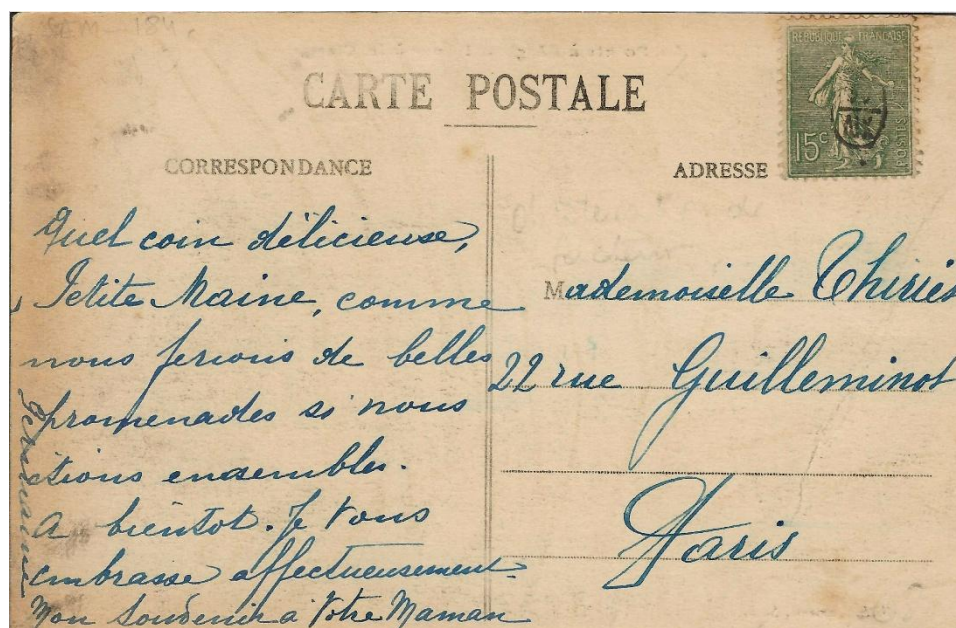 CARTE POSTALE
CORRESPONDANCE
ADRESSE
RÉPUBLIQUE FRANÇAISE
15c
POSTES
Quel coin délicieuse,
Petite Maine, comme
nous ferions de belles
promenades si nous
étions ensembles.
A bientot. Je vous
embrasse affectueusement.
Mon souvenir à votre Maman
Germaine
Mademoiselle Thiriès
22 rue Guilleminot
Paris